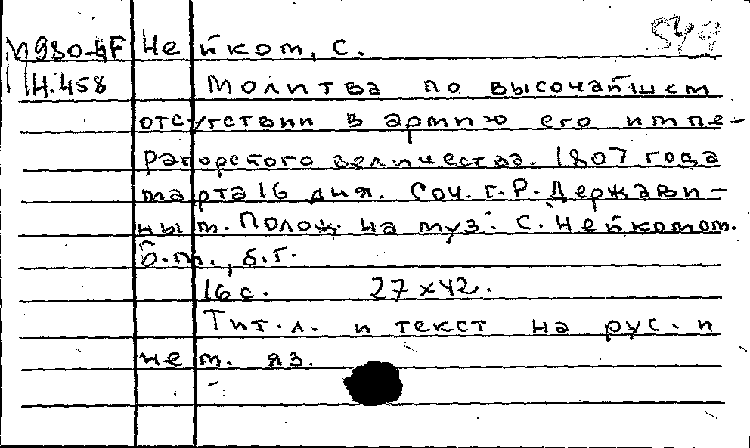 549
М980-4F Нейком, С.
Н.458 Молитва по высочайшем
отсутствии в армию его импе-
раторского величества. 1807 года
марта 16 дня. Соч. г. Р. Держави-
ным. Полож. на муз. С. Нейкомом.
б.м., б.г.
16 с. 27х42.
Тит. л. и текст на рус. и
нем. яз.